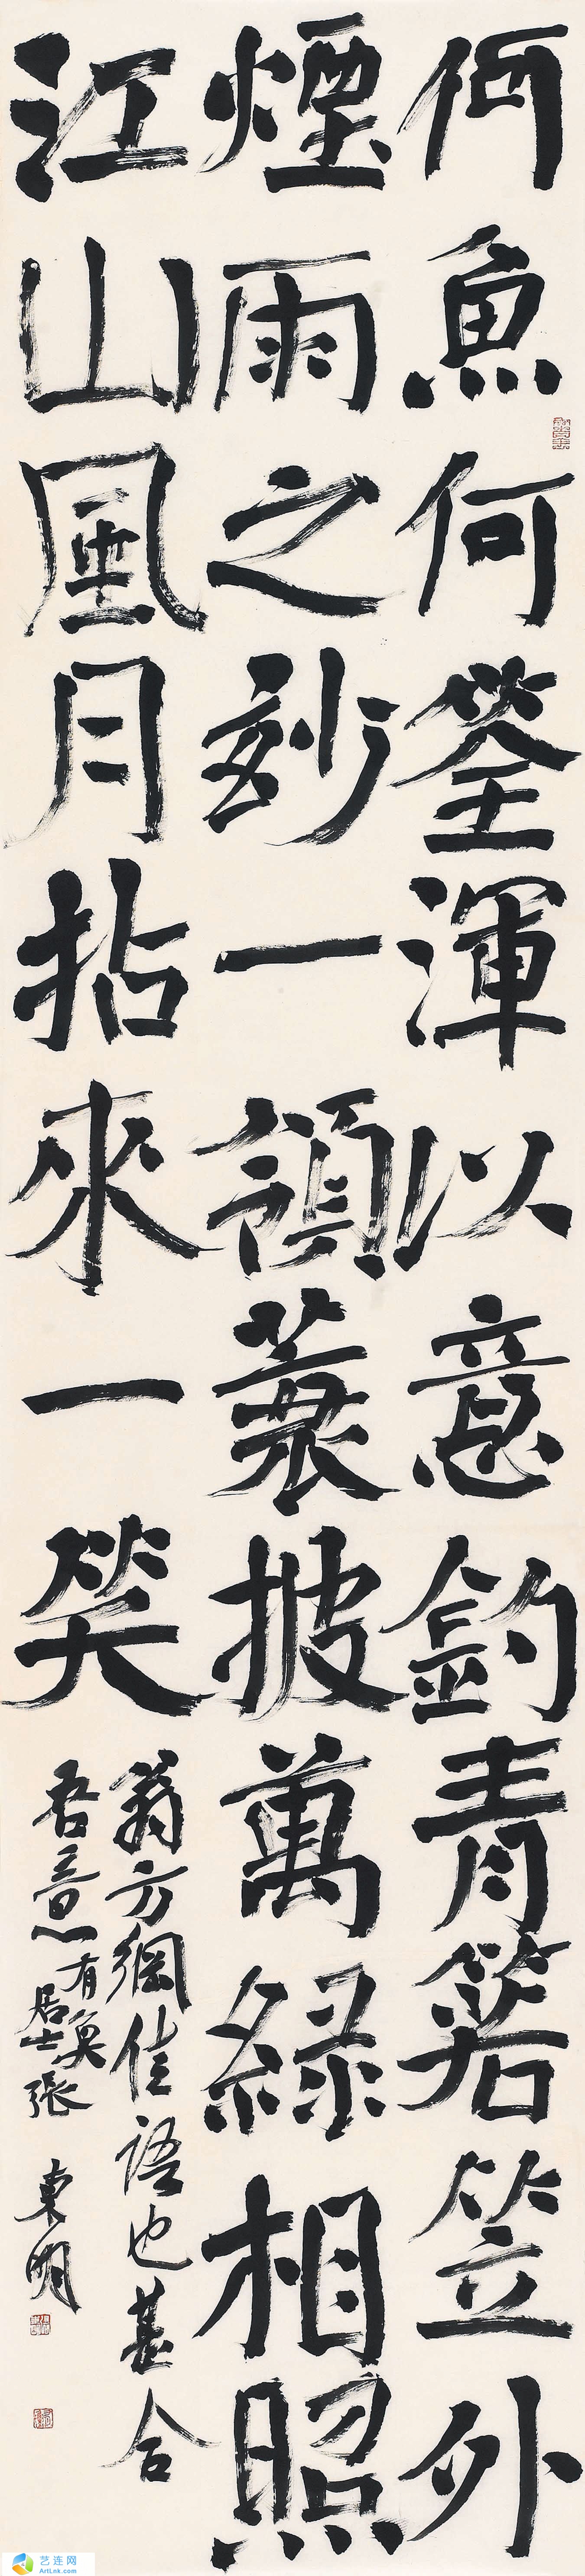 何魚何筌渾以意釣青箬笠外
煙雨之玅一領蓑披萬綠相照
江山風月拈來一笑
翁方綱佳語也甚合
吾意有居士張東明
艺连网
ArtLnk.com